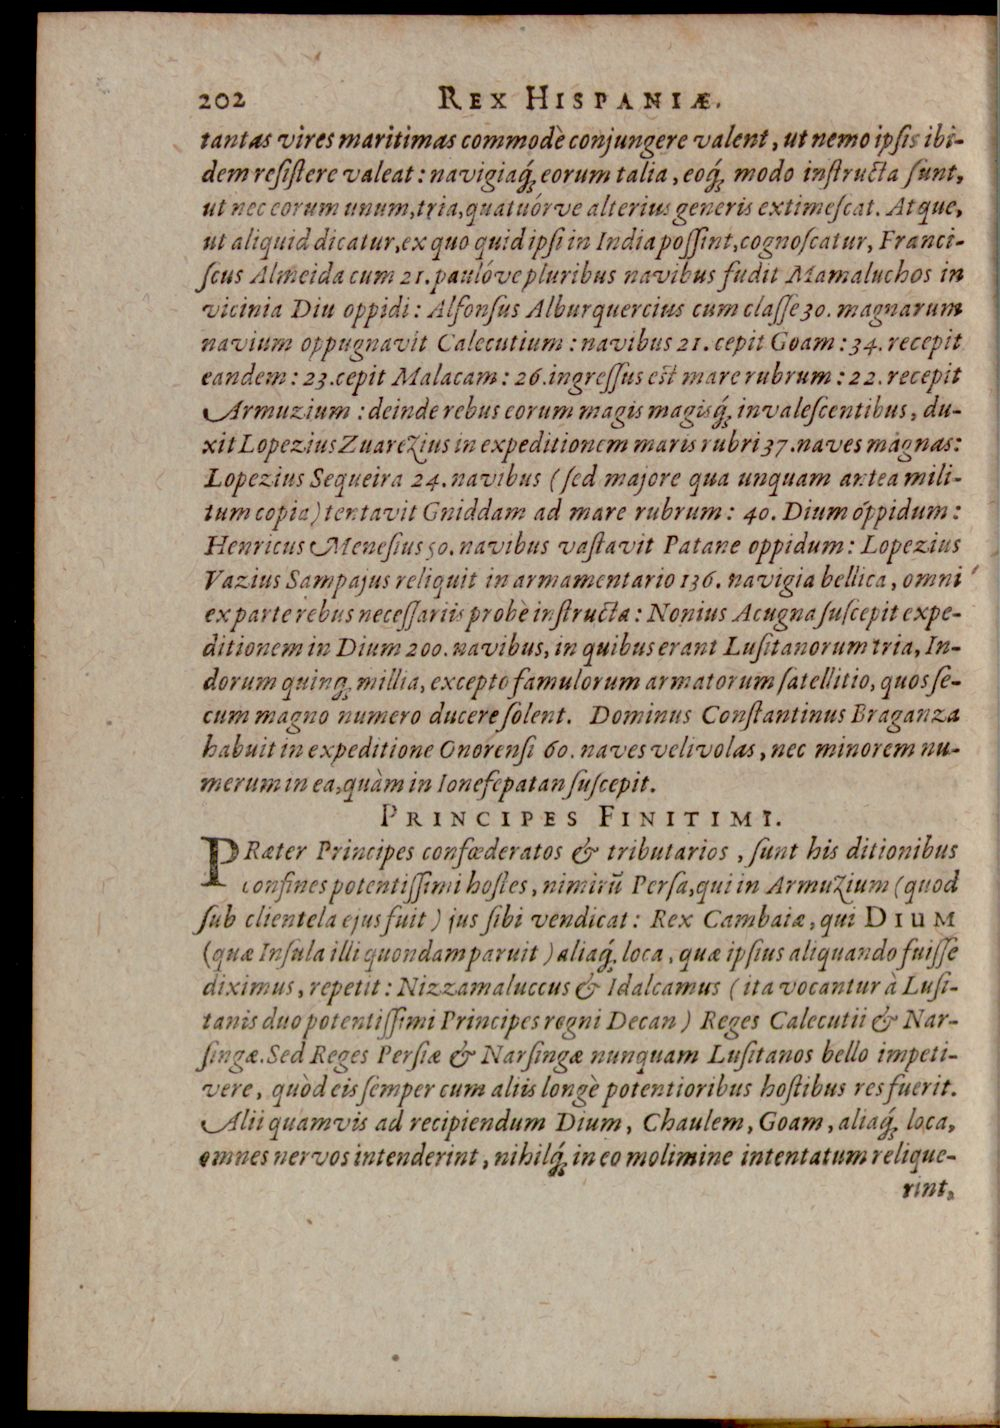 202 REX HISPANIÆ.
tantas vires maritimas commodè conjungere valent, ut nemo ipsis ibi-
dem resistere valeat: navigiaq́; eorum talia, eoq́; modo instructa sunt,
ut nec eorum unum, tria, quatuórve alterius generis extimescat. Atque,
ut aliquid dicatur, ex quo quid ipsi in India possint, cognoscatur, Franci-
scus Almeida cum 21. paulóve pluribus navibus fudit Mamaluchos in
vicinia Diu oppidi: Alfonsus Alburquercius cum classe 30. magnarum
navium oppugnavit Calecutium: navibus 21. cepit Goam: 34. recepit
eandem: 23. cepit Malacam: 26. ingressus est mare rubrum: 22. recepit
Armuzium: deinde rebus eorum magis magisq́; invalescentibus, du-
xit Lopezius Zuarezius in expeditionem maris rubri 37. naves magnas:
Lopezius Sequeira 24. navibus (sed majore qua unquam antea mili-
tum copia) tentavit Gniddam ad mare rubrum: 40. Dium óppidum:
Henricus Menesius 50. navibus vastavit Patane oppidum: Lopezius
Vazius Sampajus reliquit in armamentario 136. navigia bellica, omni
ex parte rebus necessariis probè instructa: Nonius Acugna suscepit expe-
ditionem in Dium 200. navibus, in quibus erant Lusitanorum tria, In-
dorum quinq; millia, excepto famulorum armatorum satellitio, quos se-
cum magno numero ducere solent. Dominus Constantinus Braganza
habuit in expeditione Onorensi 60. naves velivolas, nec minorem nu-
merum in ea, quàm in Ionefepatan suscepit.
PRINCIPES FINITIMI.
PRæter Principes confœderatos & tributarios, sunt his ditionibus
confines potentissimi hostes, nimirũ Persa, qui in Armuzium (quod
sub clientela ejus fuit) jus sibi vendicat: Rex Cambaiæ, qui DIUM
(quæ Insula illi quondam paruit) aliaq́; loca, quæ ipsius aliquando fuisse
diximus, repetit: Nizzamaluccus & Idalcamus (ita vocantur à Lusi-
tanis duo potentissimi Principes regni Decan) Reges Calecutii & Nar-
singæ. Sed Reges Persiæ & Narsingæ nunquam Lusitanos bello impeti-
vere, quòd eis semper cum aliis longè potentioribus hostibus res fuerit.
Alii quamvis ad recipiendum Dium, Chaulem, Goam, aliaq́; loca,
omnes nervos intenderint, nihilq́; in eo molimine intentatum relique-
rint,